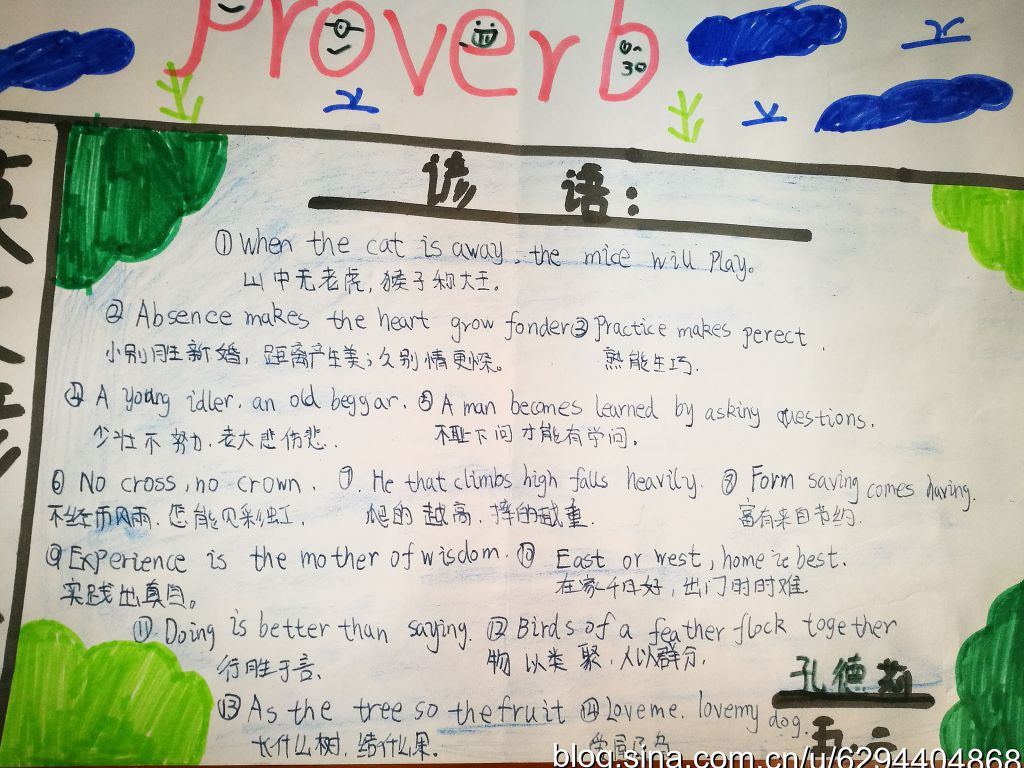 Proverb
谚语:
① When the cat is away, the mice will play。
山中无老虎,猴子称大王。
② Absence makes the heart grow fonder ③ Practice makes perect.
小别胜新婚,距离产生美;久别情更深。 熟能生巧.
④ A young idler. an old beggar. ⑤ A man becomes learned by asking questions.
少壮不努力.老大悲伤悲. 不耻下问才能有学问.
⑥ No cross, no crown. ⑦. He that climbs high falls heavily. ⑧ Form saving comes having.
不经历风雨.怎能见彩虹. 爬的越高.摔的越重. 富有来自节约.
⑨ Experience is the mother of wisdom. ⑩ East or west, home is best.
实践出真知。 在家千日好,出门时时难.
⑪ Doing is better than saying. ⑫ Birds of a feather flock together
行胜于言、 物以类聚.人以群分.
孔德莉
⑬ As the tree so the fruit ⑭ Love me. love my dog.
长什么树.结什么果。 爱屋及乌
五二
英
blog.sina.com.cn/u/6294404868